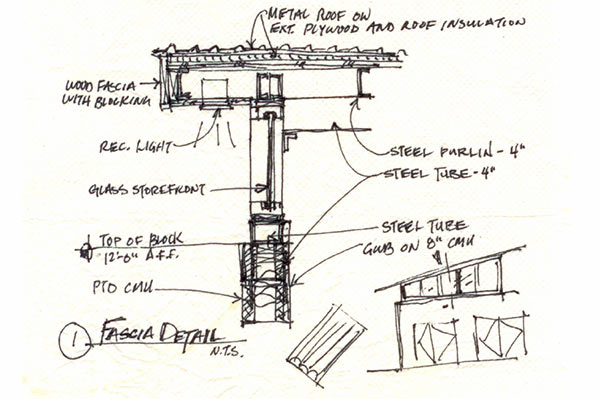 METAL ROOF ON
EXT. PLYWOOD AND ROOF INSULATION
WOOD FASCIA
WITH BLOCKING
REC. LIGHT
STEEL PURLIN - 4"
STEEL TUBE - 4"
GLASS STOREFRONT
STEEL TUBE
GWB ON 8" CMU
TOP OF BLOCK
12'-0" A.F.F.
PTD CMU
1 FASCIA DETAIL
N.T.S.